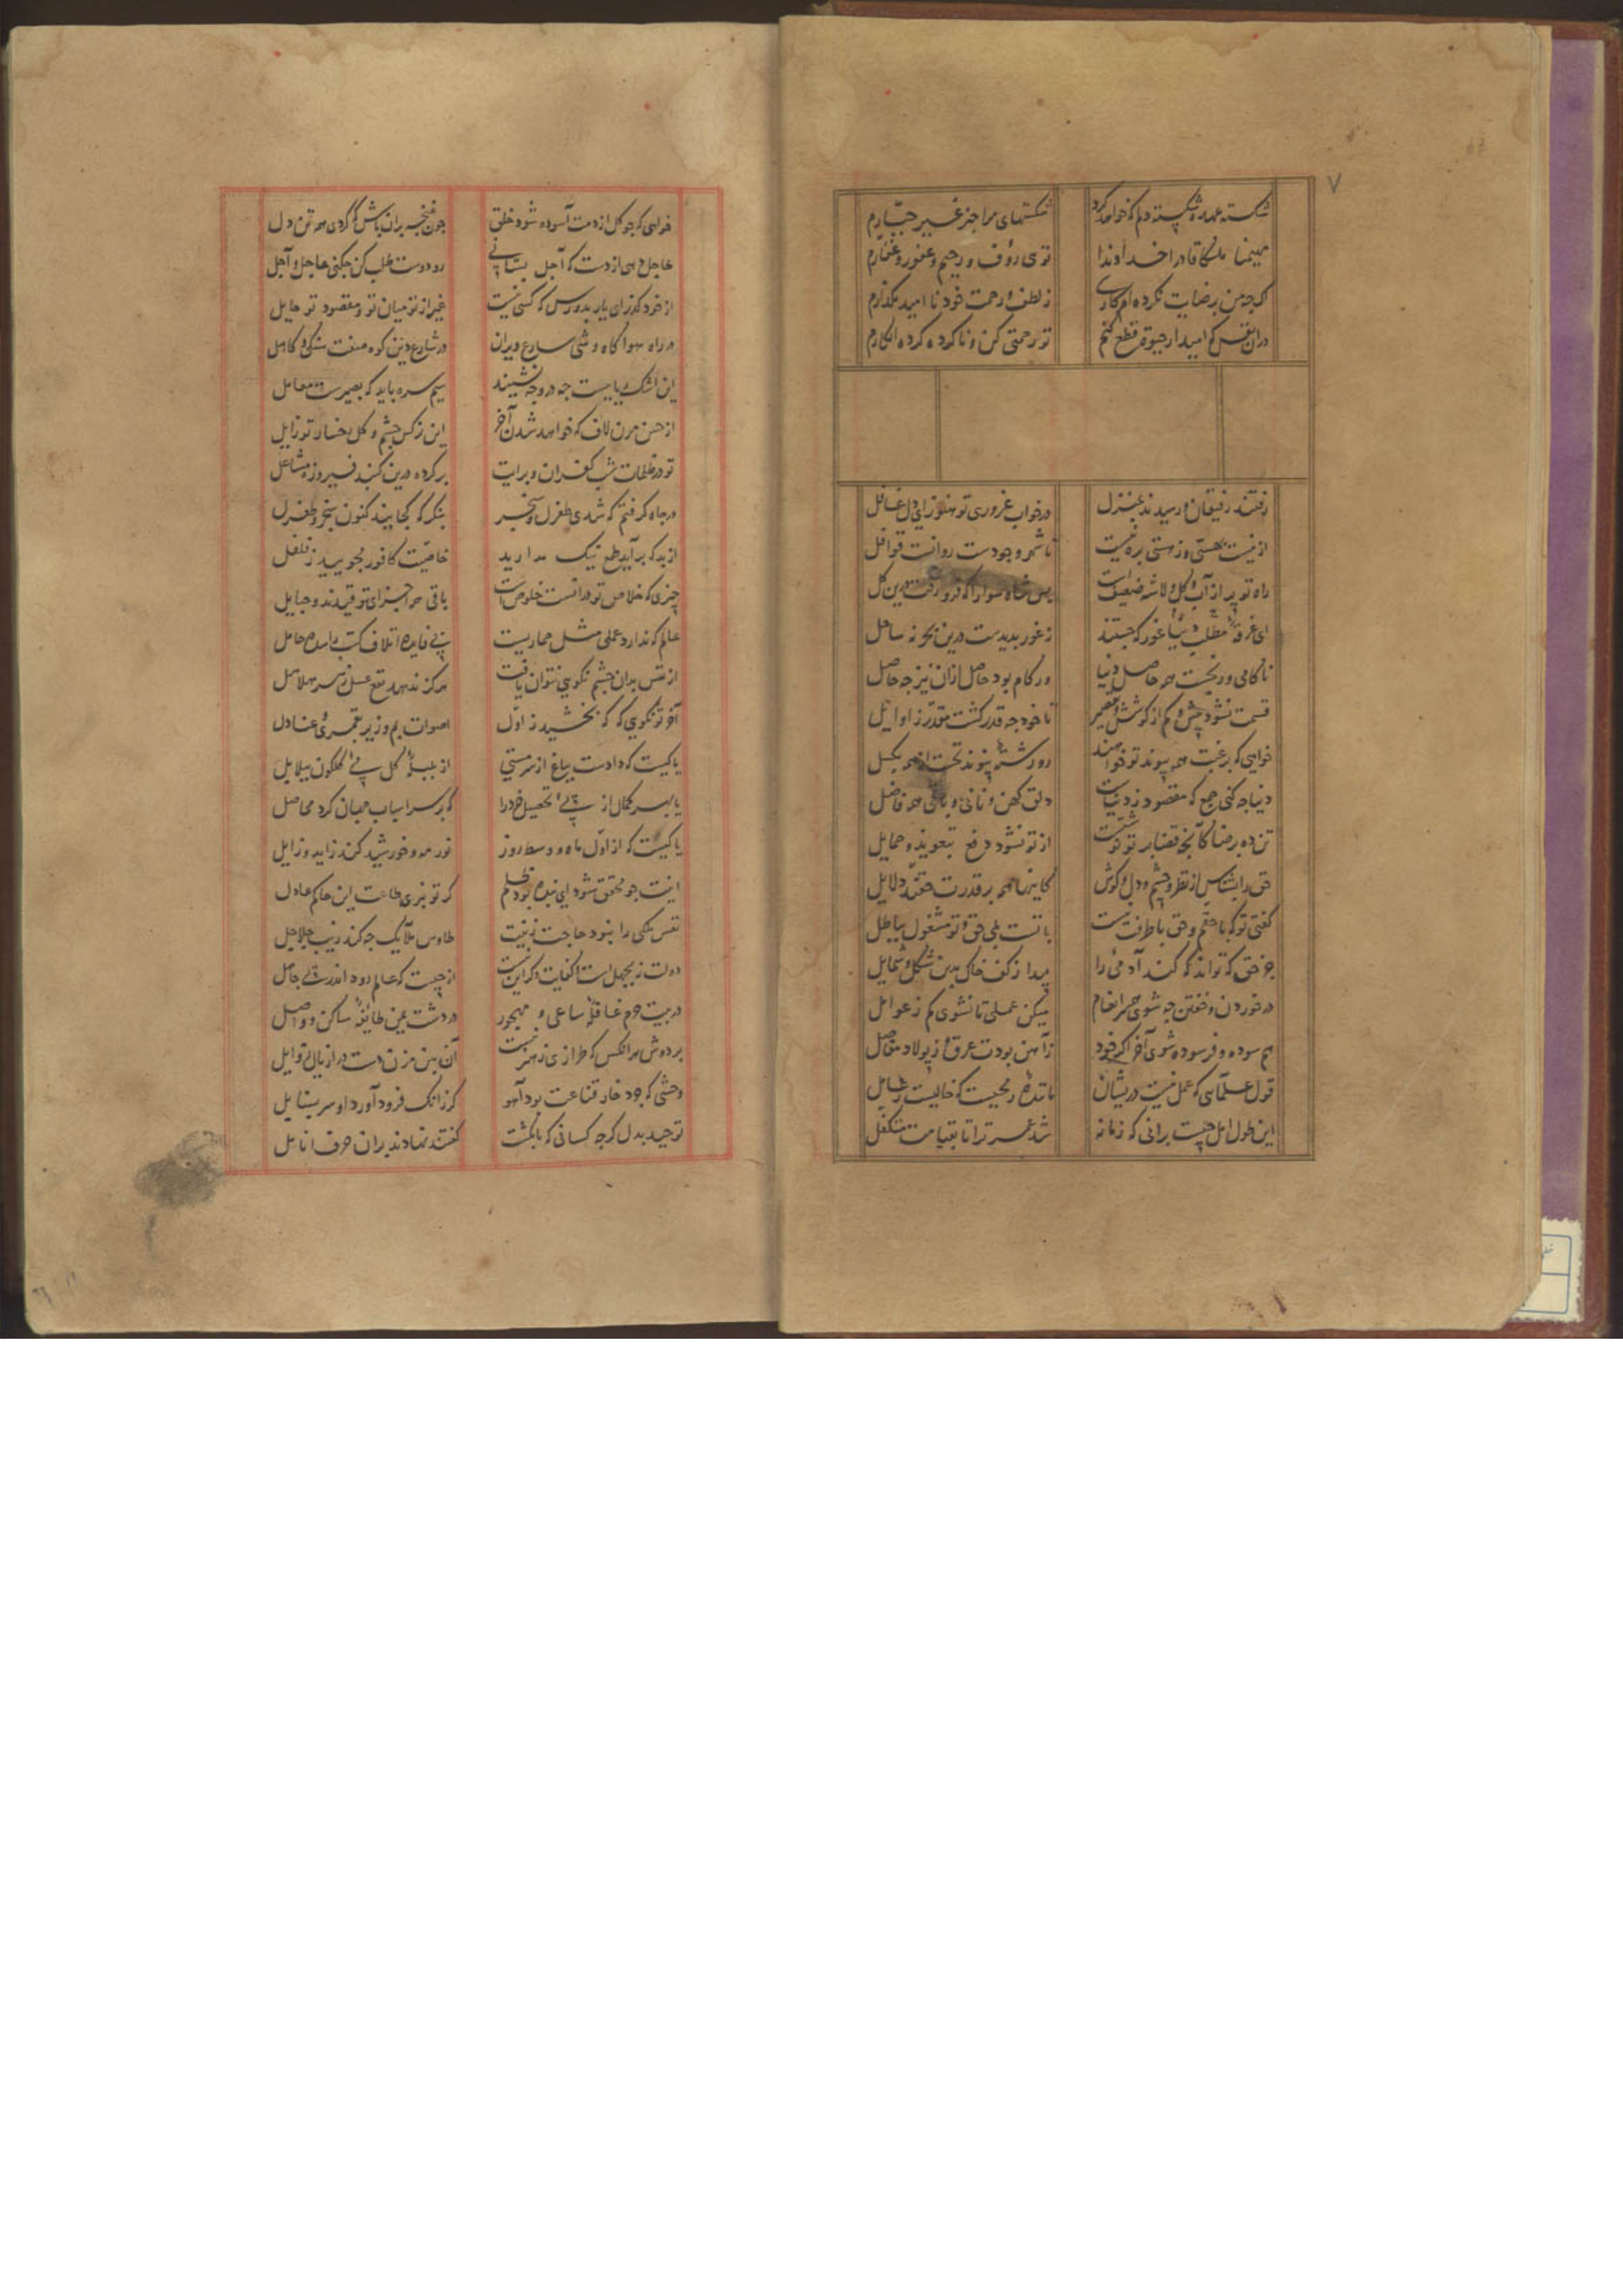 ۷
شکسته عهدم و شکسته دلم که خواهد کرد شکستهای مرا جز غیر جبّارم
مهیمنا ملکا قادرا خداوندا توی رؤف و رحیم و غفور و غفّارم
اکرچه من برضایت نکرده‌ام کاری ز لطف و رحمت خود نا امید مکذارم
دران نفس که امید از حیوة قطع کنم تو رحمتی کن و ناکرده کرده انکارم
رفتند رفیقان و رسیدند بمنزل در خواب غروری تو هنوز ای دل غافل
از نیست بهستی وز هستی بره نیست تا شهر وجودست روانت قوافل
راه تو پر از آب و کل و لاشه ضعیفست بس شاه سوارا که فرو رفت درین کل
ای غرقهٔ مطلب دنیا غور که جستند ز غور بدیدست درین بحر نه ساحل
ناکامی و رنجست همه حاصل دنیا ور کام بود حاصل ازان نیز چه حاصل
قسمت نشود بیش و کم از کوشش و تقصیر تا خود چه قدر کشت مقدّر ز اوایل
خواهی که برغبت همه پیوند تو خواهند رو رشتهٔ پیوند تخت از همه بکسل
دنیا چه کنی جمع که مقصود ز دنیات دلق کهن و نانی و باقی همه فاضل
تن ده برضا کانچه قضا بر تو نوشتست از تو نشود دفع بتعویذ و حمایل
حق را بشناس از نظر و چشم و دل و کوش کاینها همه بر قدرت حقند دلایل
کفتی تو که با حقم و حق با طرفت نیست با تست بلی حق و تو مشغول بباطل
جز حق که تواند که کند آدمئی را پیدا ز کف خاک بدین شکل و شمایل
در خوردن و خفتن چه شوی همسر انعام میکن عملی تا نشوی کم ز عوامل
هم سوده و فرسوده شوی آخر اکر خود ز آهن بودت عرق و ز پولاد مفاصل
قول علمایی که عمل نیست دریشان مانند محیست که خالیست ز شامل
این طول امل چیست برانی که زمانه شد عمر ترا تا بقیامت متکفل
خواهی که چو کل از دمت آسوده شود خلق چون غنچه بران باش که کردی همه تن دل
عاجل دهی از دست که آجل بستانی رو دوست طلب کن چه کنی عاجل و آجل
از خود کذر ای یار بدو رس که کسی نیست غیر از تو میان تو و مقصود تو حایل
در راه هوا کاه وشی سارع ویران در شارع دین کوه صفت سنکی و کاهل
این اشک ریاییست چه در وجه نشیند سیم سره باید که بصیرست معامل
از حسن مزن لاف که خواهد شدن آخر این نرکس چشم و کل رخسار تو زایل
تو در ظلمات شب کفران و برایت بر کرده درین کنبد فیروزه مشاعل
در جاه کرفتم که شدی طغرل و سنجر بنکر که کجایند کنون سنجر و طغرل
از بد که برآید طمع نیک مدارید خاصیت کافور مجویید ز فلفل
چیزی که خلاص تو درانست خلوص است باقی همه اجزای تو قیدند و حبایل
عالم که ندارد عملی مثل حماریست بی فایده اتلاف کتب را شده حامل
از نفس بدان چشم نکویی نتوان یافت هرکز ندهد نفع عسل زهر هلاهل
آخر تو نکویی که که بخشید ز اوّل اصوات بم و زیر بقمری و عنادل
یا کیست که دادست بباغ از سر مستی از بلبلهٔ کل می کلکون ببلابل
یا بهر کمال از پی تحصیل خرد را کو بر سر اسباب جهان کرد محاصل
یا کیست که از اوّل ماه و وسط روز نور مه و خورشید کند زاید و زایل
اینت چو محقق شود ای بنده بود ظلم کر تو نبری طاعت این حاکم عادل
نفس ملکی را نبود حاجت زینت طاوس ملایک چه کند زیب جلاجل
دولت نه بجهل است و کفایت وکر این نیست از چیست که عالم رود اندر پی جاهل
در بیت حرم عاقله ساعی و مهجور در دشت عین طایفهٔ ساکن و واصل
بر دوش هر انکس که طرازی ز هنر نیست آن بس مزن دست در اذیال نوایل
وحشی که چو خار قناعت بود آهو کر زانک فرود آورد او سر بسنابل
توحید بدل کرچه کسانی که بانکشت کفتند نهادند بران حرف انامل